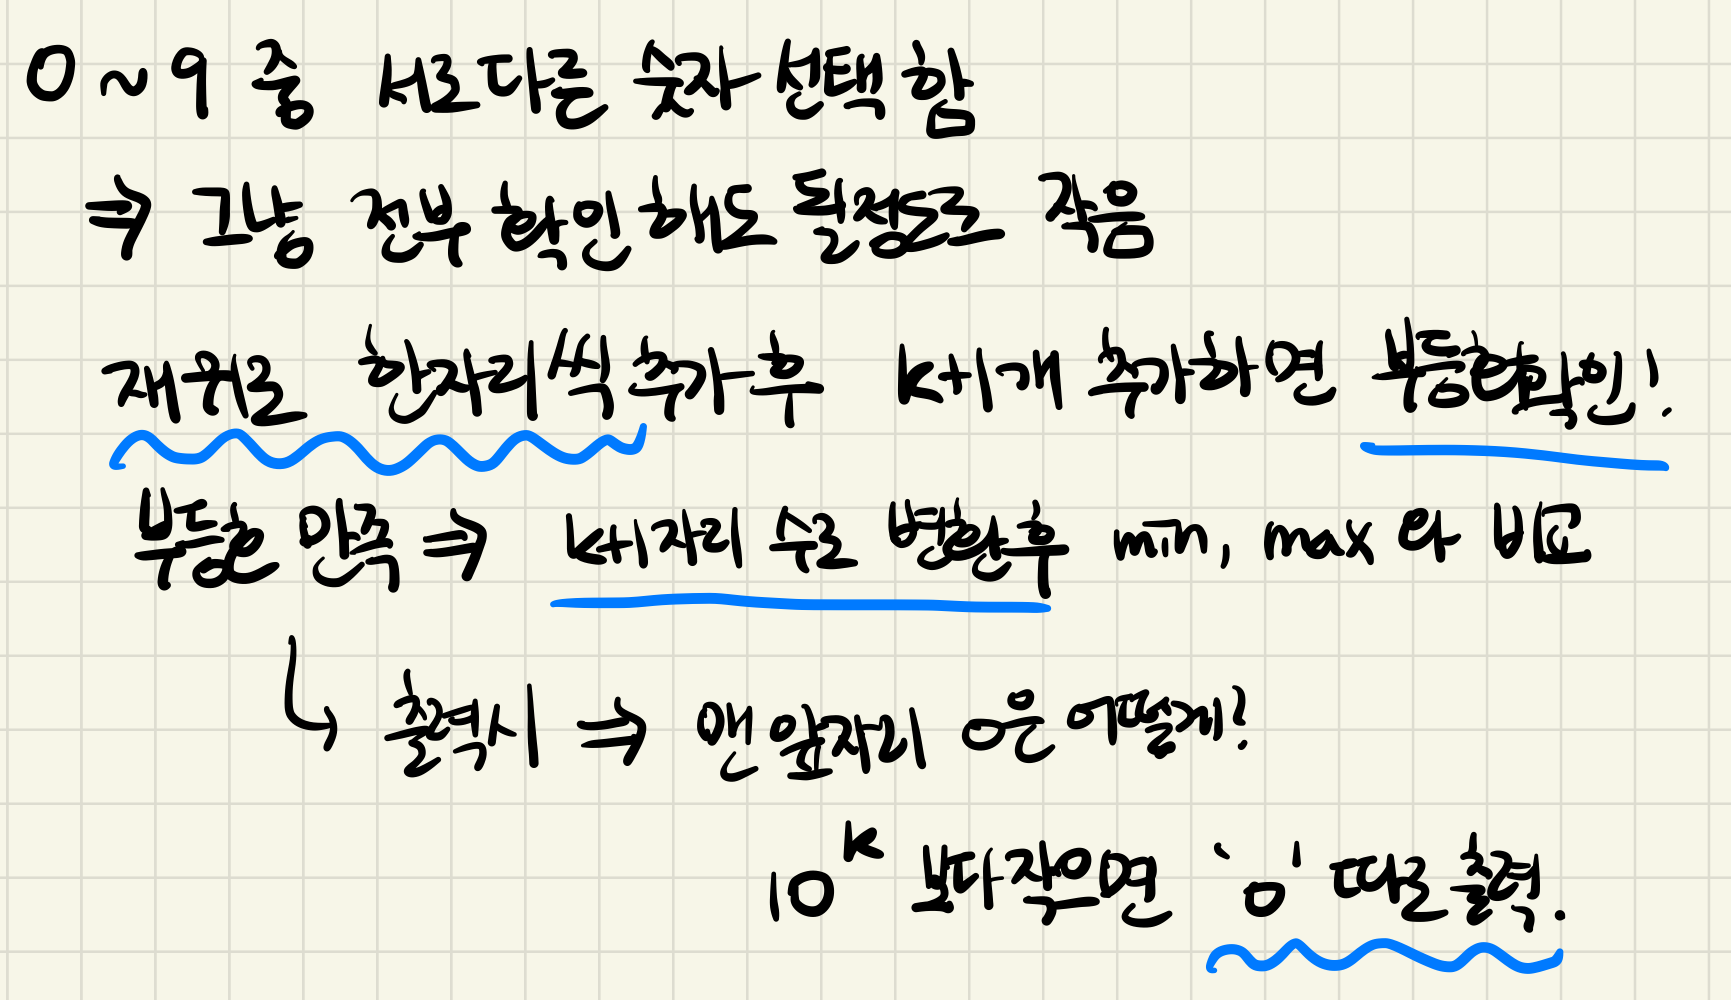 0 ~ 9 중 서로다른 숫자 선택함
⇒ 그냥 전부 확인해도 될정도로 작음
재귀로 한자리씩 추가 후 k+1개 추가하면 부등호확인!
부등호 만족 ⇒ k+1자리 수로 변환후 min, max 와 비교
↳ 출력시 ⇒ 맨 앞자리 0은 어떻게?
10^k 보다 작으면 '0' 따로 출력.